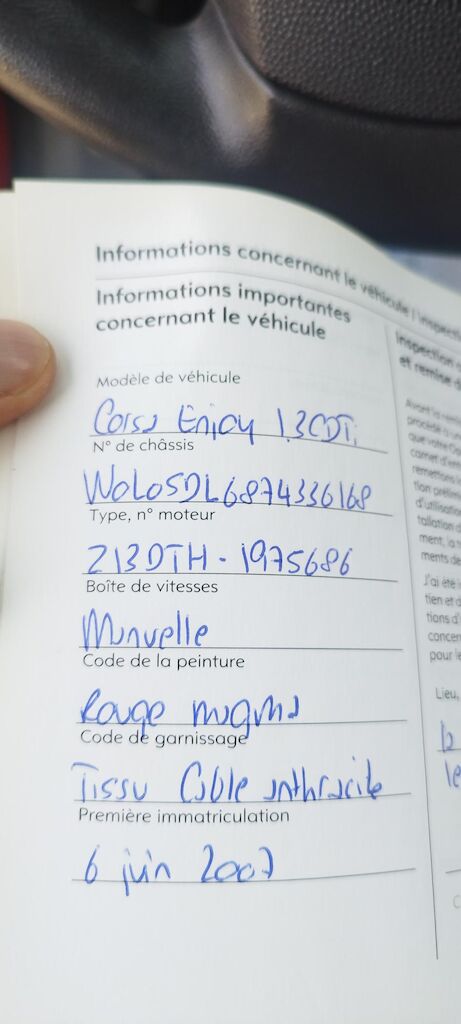 Informations concernant le véhicule | Inspecti
Informations importantes
concernant le véhicule
Modèle de véhicule
Corsa Enjoy 1.3CDTi
N° de châssis
W0L0SDL6874336168
Type, n° moteur
Z13DTH - 1975686
Boîte de vitesses
Manuelle
Code de la peinture
Rouge magma
Code de garnissage
Tissu Cable anthracite
Première immatriculation
6 juin 2007
Inspection
et remise d
Avant la remi
procédé à un
que votre Op
carnet d'entr
remettons l
tion prélimi
d'utilisatio
tallation d
ment, la
ments de
J'ai été i
tien et d
tions d'
concer
pour le
Lieu,
le